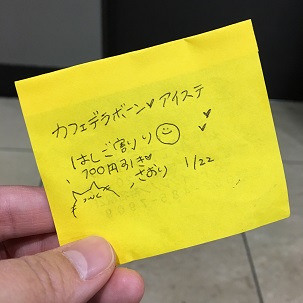 カフェデラボーン♥アイステ
はしご割り
700円引き♥
さおり 1/22